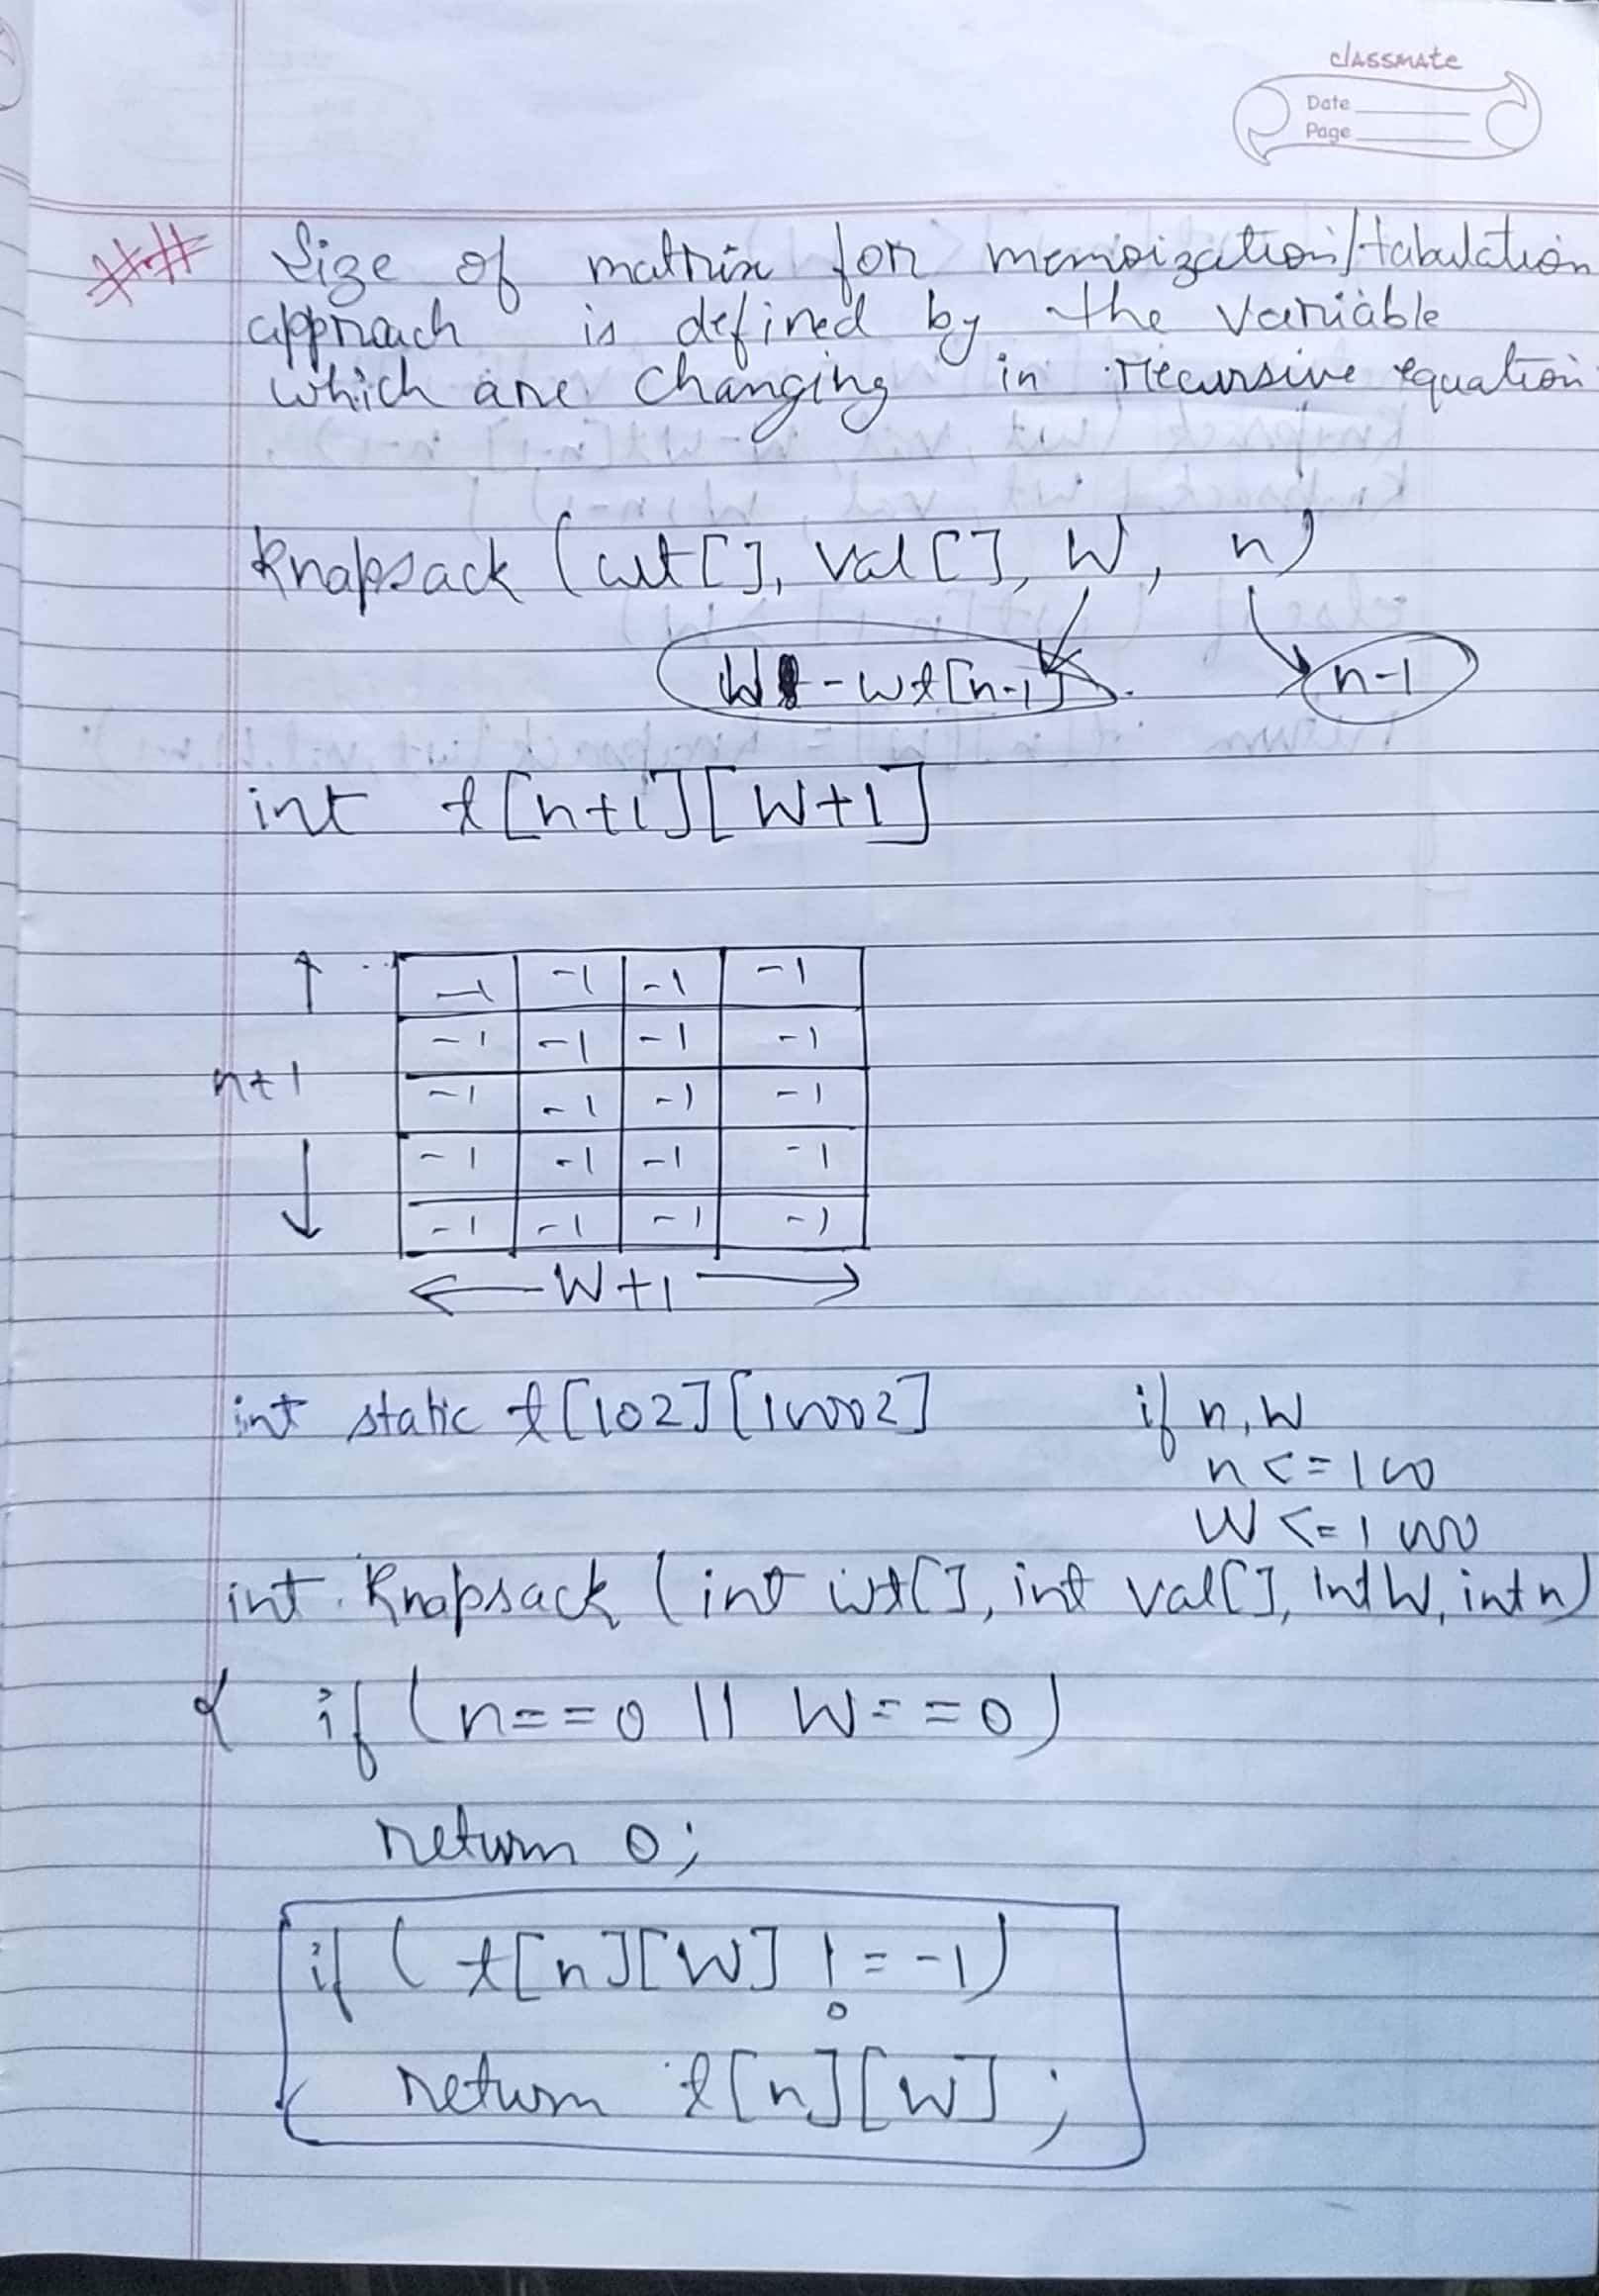 classmate
Date
Page
## Size of matrix for memoization/tabulation
approach is defined by the variable
which are changing in recursive equation
Knapsack (wt[], val[], W, n)
W - wt[n-1] n-1
int t[n+1][W+1]
-1 -1 -1 -1
-1 -1 -1 -1
n+1
-1 -1 -1 -1
-1 -1 -1 -1
-1 -1 -1 -1
W+1
int static t[102][1002] if n, W
n <= 100
W <= 1000
int Knapsack (int wt[], int val[], int W, int n)
{ if (n==0 || W==0)
return 0;
if (t[n][W] != -1)
return t[n][W];